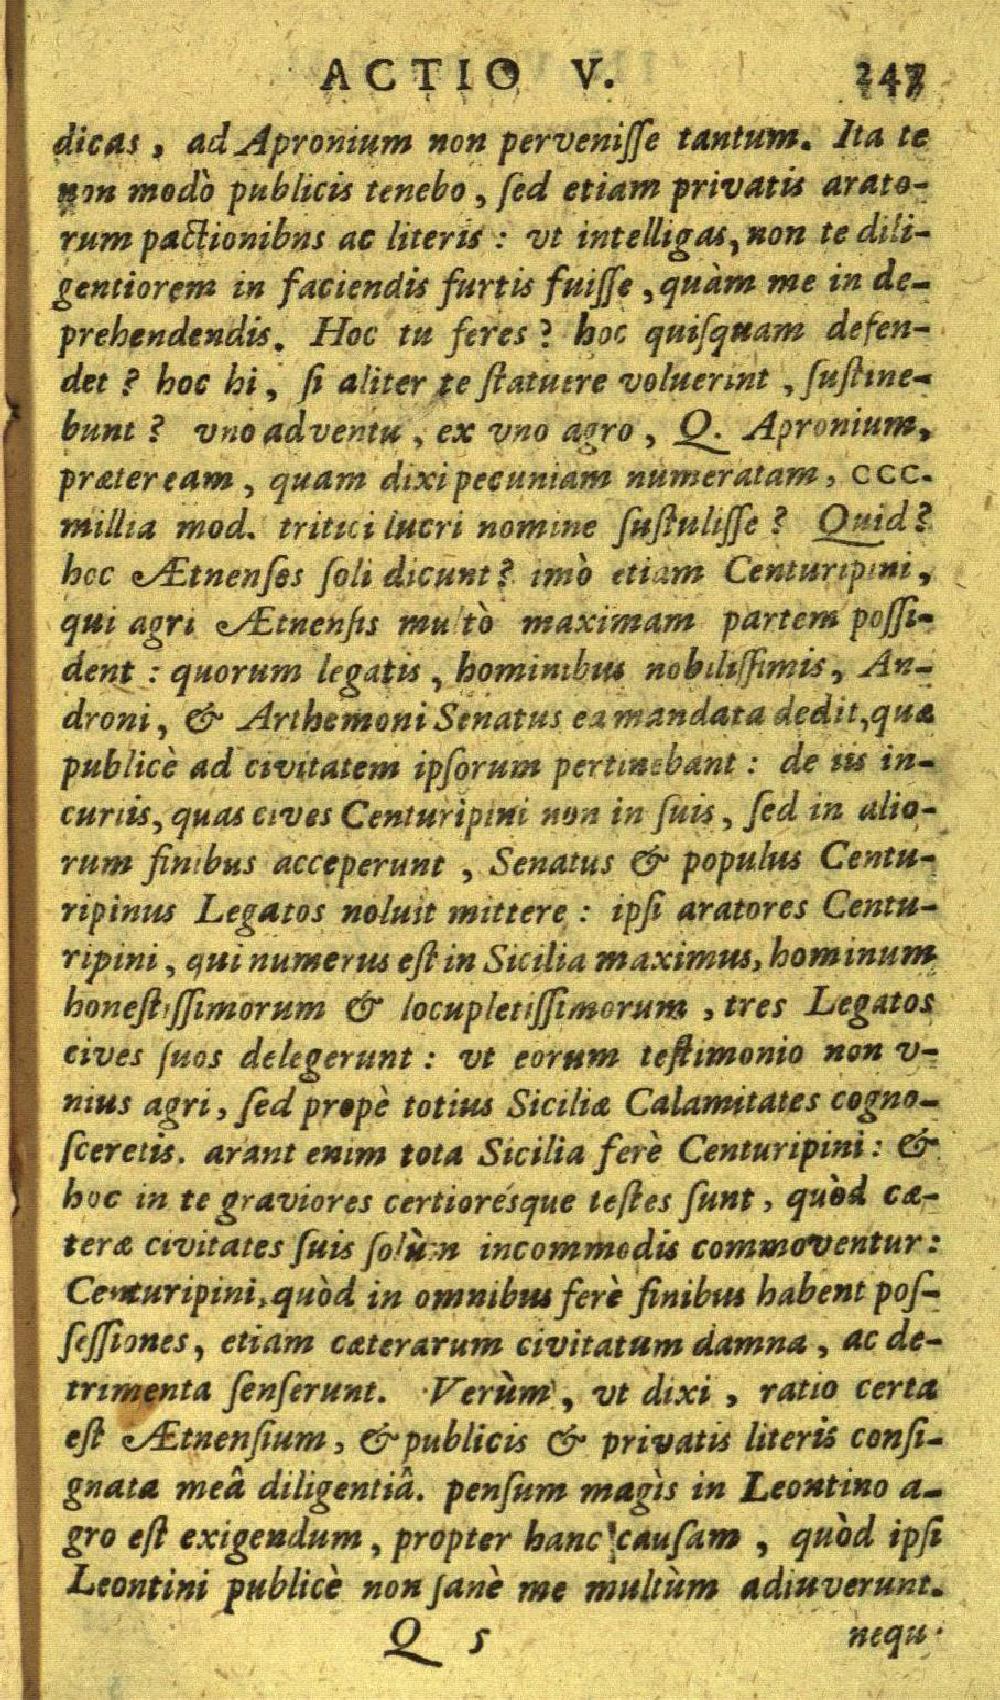 ACTIO V. 247
dicas, ad Apronium non perveniſſe tantum. Ita te
non modò publicis tenebo, ſed etiam privatis arato-
rum pactionibns ac literis : vt intelligas, non te dili-
gentiorem in faciendis furtis fuiſſe, quàm me in de-
prehendendis. Hoc tu feres? hoc quiſquam defen-
det? hoc hi, ſi aliter te ſtatuere voluerint, ſuſtine-
bunt? vno adventu, ex vno agro, Q. Apronium,
præter eam, quam dixi pecuniam numeratam, CCC.
millia mod. tritici lucri nomine ſuſtuliſſe? Quid?
hoc Ætnenſes ſoli dicunt? imò etiam Centuripini,
qui agri Ætnenſis multò maximam partem poſſi-
dent : quorum legatis, hominibus nobiliſſimis, An-
droni, & Arthemoni Senatus ea mandata dedit, quæ
publicè ad civitatem ipſorum pertinebant : de iis in-
curiis, quas cives Centuripini non in ſuis, ſed in alio-
rum finibus acceperunt, Senatus & populus Centu-
ripinus Legatos noluit mittere : ipſi aratores Centu-
ripini, qui numerus eſt in Sicilia maximus, hominum
honeſtiſſimorum & locupletiſſimorum, tres Legatos
cives ſuos delegerunt : vt eorum teſtimonio non v-
nius agri, ſed propè totius Siciliæ Calamitates cogno-
ſceretis. arant enim tota Sicilia ferè Centuripini : &
hoc in te graviores certiorésque teſtes ſunt, quòd cæ-
teræ civitates ſuis ſolùm incommodis commoventur :
Centuripini, quòd in omnibus ferè finibus habent poſ-
ſeſſiones, etiam cæterarum civitatum damna, ac de-
trimenta ſenſerunt. Verùm, vt dixi, ratio certa
eſt Ætnenſium, & publicis & privatis literis conſi-
gnata meâ diligentiâ. penſum magìs in Leontino a-
gro eſt exigendum, propter hanc cauſam, quòd ipſi
Leontini publicè non ſanè me multùm adiuverunt.
Q 5 nequ